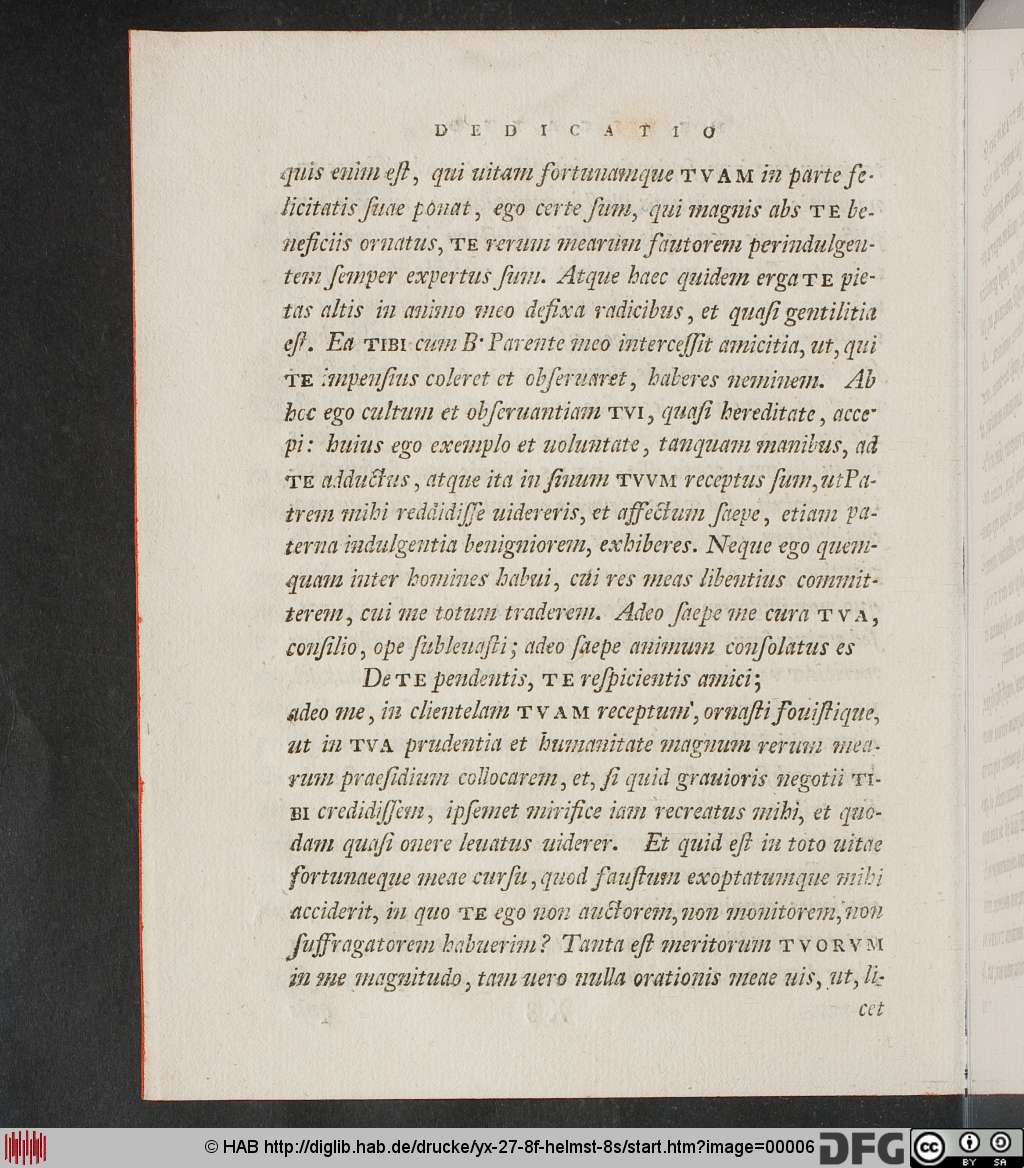 DEDICATIO
quis enim eſt, qui uitam fortunamque TVAM in parte fe-
licitatis ſuae ponat, ego certe ſum, qui magnis abs TE be-
neficiis ornatus, TE rerum mearum fautorem perindulgen-
tem ſemper expertus ſum. Atque haec quidem erga TE pie-
tas altis in animo meo defixa radicibus, et quaſi gentilitia
eſt. Ea TIBI cum B. Parente meo interceſſit amicitia, ut, qui
TE impenſius coleret et obſeruaret, haberes neminem. Ab
hoc ego cultum et obſeruantiam TVI, quaſi hereditate, acce-
pi: huius ego exemplo et uoluntate, tanquam manibus, ad
TE adductus, atque ita in ſinum TVVM receptus ſum, ut Pa-
trem mihi reddidiſſe uidereris, et affectum ſaepe, etiam pa-
terna indulgentia benigniorem, exhiberes. Neque ego quem-
quam inter homines habui, cui res meas libentius commit-
terem, cui me totum traderem. Adeo ſaepe me cura TVA,
conſilio, ope ſubleuaſti; adeo ſaepe animum conſolatus es
De TE pendentis, TE reſpicientis amici;
adeo me, in clientelam TVAM receptum, ornaſti fouiſtique,
ut in TVA prudentia et humanitate magnum rerum mea-
rum praeſidium collocarem, et, ſi quid grauioris negotii TI-
BI credidiſſem, ipſemet mirifice iam recreatus mihi, et quo-
dam quaſi onere leuatus uiderer. Et quid eſt in toto uitae
fortunaeque meae curſu, quod fauſtum exoptatumque mihi
acciderit, in quo TE ego non auctorem, non monitorem, non
ſuffragatorem habuerim? Tanta eſt meritorum TVORVM
in me magnitudo, tam uero nulla orationis meae uis, ut, li-
cet
© HAB http://diglib.hab.de/drucke/yx-27-8f-helmst-8s/start.htm?image=00006 DFG cc BY SA